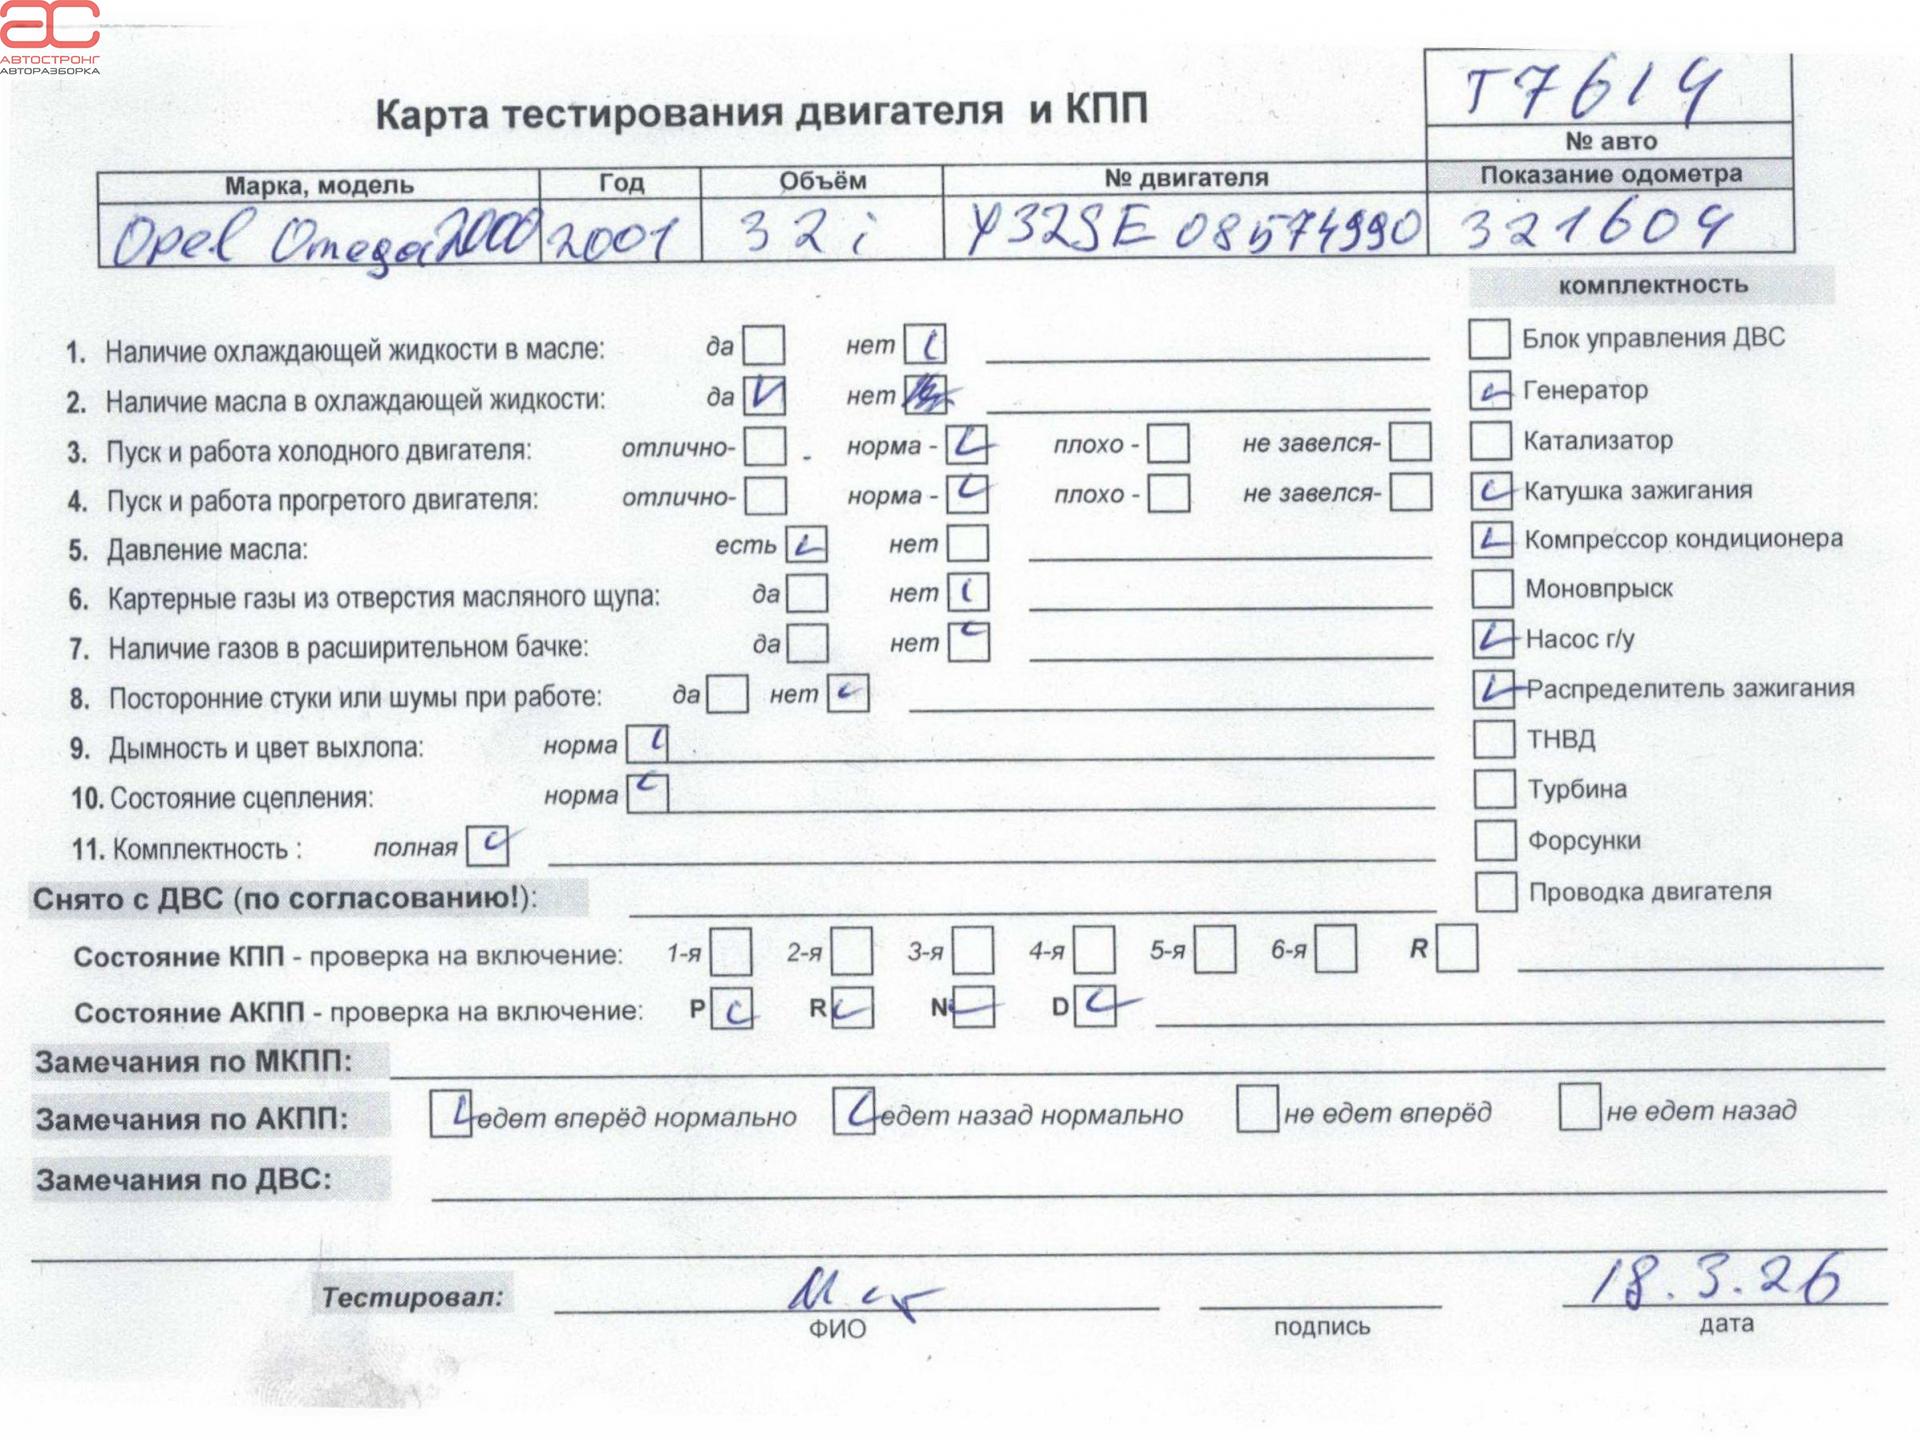 АС
АВТОСТРОНГ
АВТОРАЗБОРКА
Т7614
Карта тестирования двигателя и КПП
№ авто
Марка, модель Год Объём № двигателя Показание одометра
Opel Omega 2000 2001 32i Y32SE 08574990 321604
комплектность
1. Наличие охлаждающей жидкости в масле: да нет
Блок управления ДВС
2. Наличие масла в охлаждающей жидкости: да нет
Генератор
3. Пуск и работа холодного двигателя: отлично- норма - плохо - не завелся-
Катализатор
4. Пуск и работа прогретого двигателя: отлично- норма - плохо - не завелся-
Катушка зажигания
5. Давление масла: есть нет
Компрессор кондиционера
6. Картерные газы из отверстия масляного щупа: да нет
Моновпрыск
7. Наличие газов в расширительном бачке: да нет
Насос г/у
8. Посторонние стуки или шумы при работе: да нет
Распределитель зажигания
9. Дымность и цвет выхлопа: норма
ТНВД
10. Состояние сцепления: норма
Турбина
11. Комплектность : полная
Форсунки
Снято с ДВС (по согласованию!):
Проводка двигателя
Состояние КПП - проверка на включение: 1-я 2-я 3-я 4-я 5-я 6-я R
Состояние АКПП - проверка на включение: P R N D
Замечания по МКПП:
Замечания по АКПП: едет вперёд нормально едет назад нормально не едет вперёд не едет назад
Замечания по ДВС:
Тестировал: 18.3.26
ФИО подпись дата